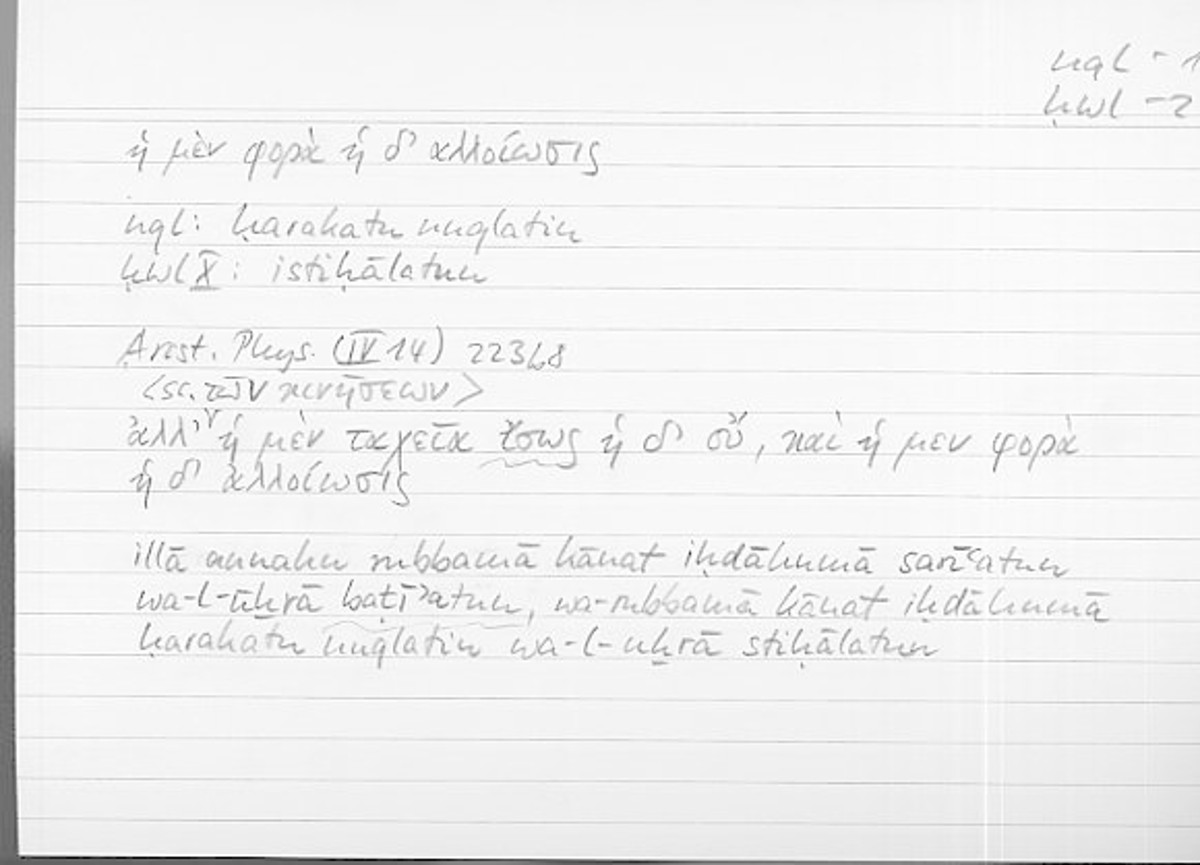 nql - 1
ḥwl - 2
ἡ μὲν φορὰ ἡ δ' ἀλλοίωσις
nql: ḥarakatu nuqlatin
ḥwl X: istiḥālatun
Arist. Phys. (IV 14) 223b8
<sc. τῶν κινήσεων>
ἀλλ' ἡ μὲν ταχεῖα ἴσως ἡ δ' οὔ, καὶ ἡ μεν φορὰ
ἡ δ' ἀλλοίωσις
illā annahu rubbamā kānat iḥdāhumā sarīʿatun
wa-l-uḫrā baṭīʾatun, wa-rubbamā kānat iḥdāhumā
ḥarakatu nuqlatin wa-l-uḫrā stiḥālatun